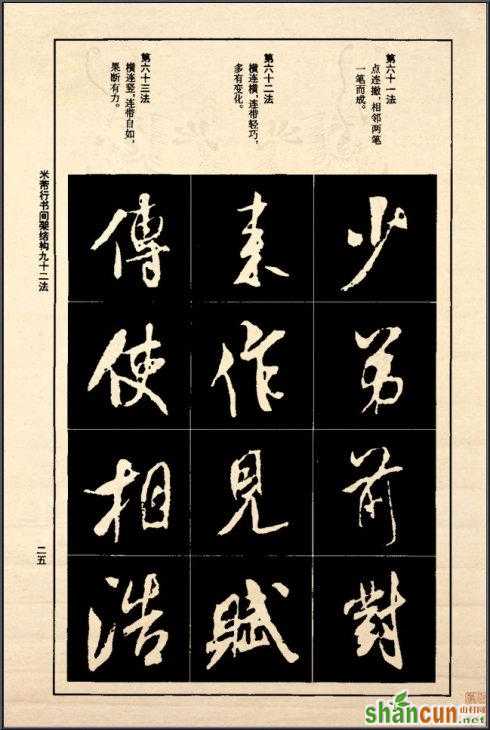 第六十一法
点连撇，相邻两笔
一笔而成。
第六十二法
横连横，连带轻巧，
多有变化。
第六十三法
横连竖，连带自如，
果断有力。
少
弟
前
對
来
作
見
賦
傳
使
相
浩
米芾行书间架结构九十二法
二五
shancun
山村网
.net